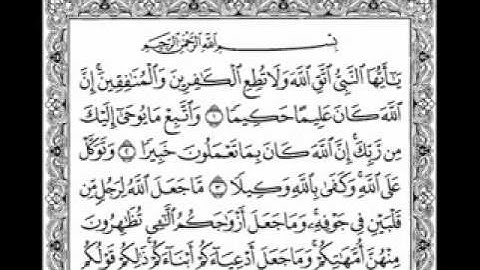 بِسْمِ اللَّهِ الرَّحْمَٰنِ الرَّحِيمِ
يَٰٓأَيُّهَا النَّبِيُّ اتَّقِ اللَّهَ وَلَا تُطِعِ الْكَٰفِرِينَ وَالْمُنَٰفِقِينَ ۗ إِنَّ
اللَّهَ كَانَ عَلِيمًا حَكِيمًا ١ وَاتَّبِعْ مَا يُوحَىٰٓ إِلَيْكَ
مِن رَّبِّكَ ۚ إِنَّ اللَّهَ كَانَ بِمَا تَعْمَلُونَ خَبِيرًا ٢ وَتَوَكَّلْ
عَلَى اللَّهِ ۚ وَكَفَىٰ بِاللَّهِ وَكِيلًا ٣ مَّا جَعَلَ اللَّهُ لِرَجُلٍ مِّن
قَلْبَيْنِ فِي جَوْفِهِ ۚ وَمَا جَعَلَ أَزْوَٰجَكُمُ الَّٰٓـِٔي تُظَٰهِرُونَ
مِنْهُنَّ أُمَّهَٰتِكُمْ ۚ وَمَا جَعَلَ أَدْعِيَآءَكُمْ أَبْنَآءَكُمْ ۚ ذَٰلِكُمْ قَوْلُكُم